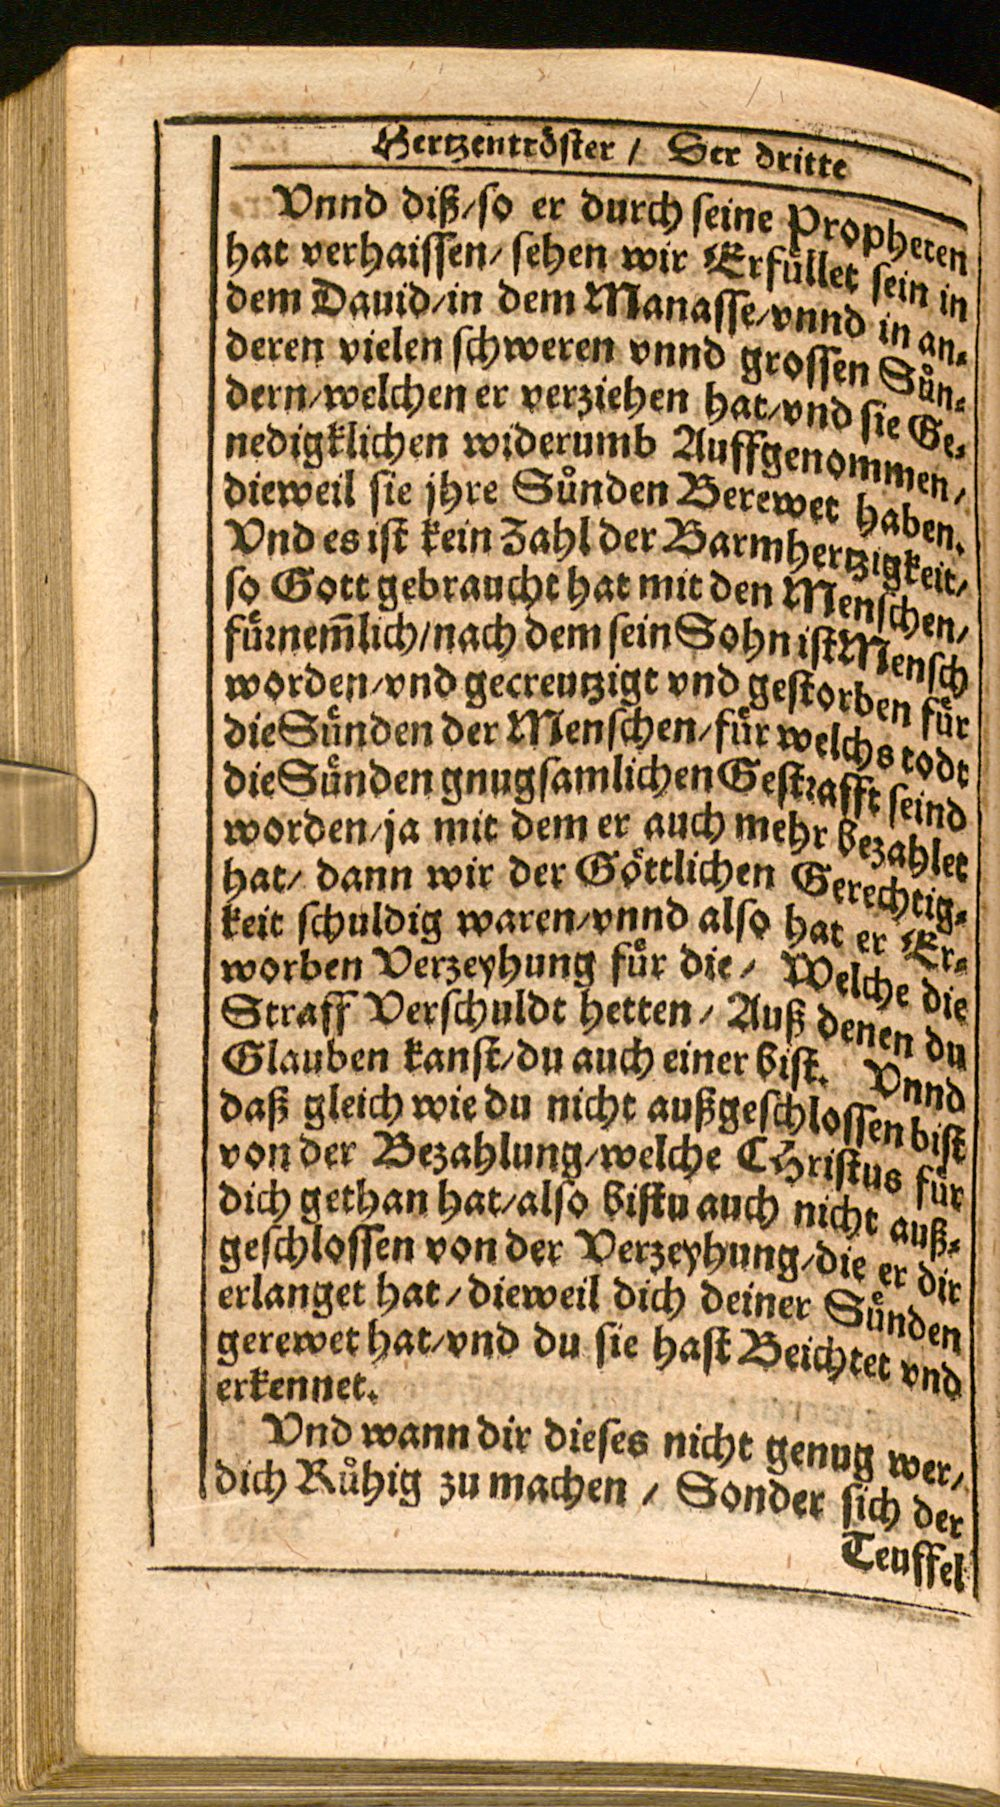 Hertzentröster / Der dritte
Vnnd diß/so er durch seine Propheten
hat verhaissen/ sehen wir Erfüllet sein in
dem Dauid/in dem Manasse/vnnd in an⸗
deren vielen schweren vnnd grossen Sün⸗
dern/welchen er verziehen hat/vnd sie Ge⸗
nedigklichen widerumb Auffgenommen/
dieweil sie jhre Sünden Berewet haben.
Vnd es ist kein Zahl der Barmhertzigkeit/
so Gott gebraucht hat mit den Menschen/
fürnem̃lich/nach dem sein Sohn ist Mensch
worden/vnd gecreutzigt vnd gestorben für
die Sünden der Menschen/für welchs todt
die Sünden gnugsamlichen Gestrafft seind
worden/ja mit dem er auch mehr bezahlet
hat/ dann wir der Göttlichen Gerechtig⸗
keit schuldig waren/vnnd also hat er Er⸗
worben Verzeyhung für die/ Welche die
Straff Verschuldt hetten/ Auß denen du
Glauben kanst/du auch einer bist. Vnnd
daß gleich wie du nicht außgeschlossen bist
von der Bezahlung/welche CHristus für
dich gethan hat/also bistu auch nicht auß⸗
geschlossen von der Verzeyhung/die er dir
erlanget hat/dieweil dich deiner Sünden
gerewet hat/vnd du sie hast Beichtet vnd
erkennet.
Vnd wann dir dieses nicht genug wer/
dich Růhig zu machen / Sonder sich der
Teuffel